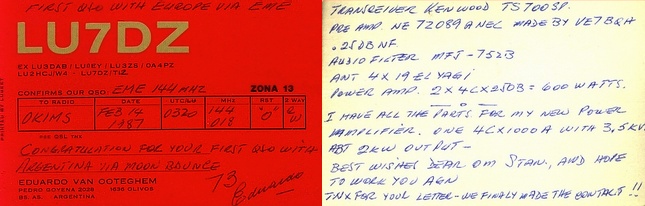 FIRST QSO WITH EUROPE VIA EME
LU7DZ
EX LU3DAB / LU6EY / LU3ZS / OA4PZ
LU2HCJ/W4 / LU7DZ/TIZ
CONFIRMS OUR QSO: EME 144 MHZ ZONA 13
TO RADIO DATE UTC/GM MHz RST 2 WAY
OK1MS FEB 14 1987 0320 144 018 "O" CW
PSE QSL TNX
CONGRATULATION FOR YOUR FIRST QSO WITH
ARGENTINA VIA MOON BOUNCE
EDUARDO VAN OOTEGHEM 73
PEDRO GOYENA 2025 1636 OLIVOS Eduardo
BS. AS. ARGENTINA
TRANSCEIVER KENWOOD TS700SP.
PRE AMP. NE 72089 A NEC MADE BY VE7BQH
.25DB NF
AUDIO FILTER MFJ-752B
ANT 4X19 EL YAGI
POWER AMP. 2X4CX250B = 600 WATTS.
I HAVE ALL THE PARTS FOR MY NEW POWER
AMPLIFIER. ONE 4CX1000A WITH 3,5KV.
ABT 2KW OUTPUT-
BEST WISHES DEAR OM STAN, AND HOPE
TO WORK YOU AGN
TNX FOR YOUR LETTER-WE FINALLY MADE THE CONTACT!!